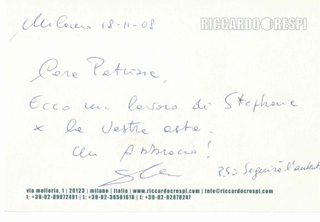 Milano 18-11-08
RICCARDO CRESPI
Cara Patrizia,
Ecco un lavoro di Stephane
x la Vostra asta.
Un abbraccio!
P.S.: Seguirà l'autent
via mellerio, 1 | 20123 | milano | italia | www.riccardocrespi.com | info@riccardocrespi.com
t: +39-02-89072491 | t: +39-02-36561618 | f: +39-02-92870247